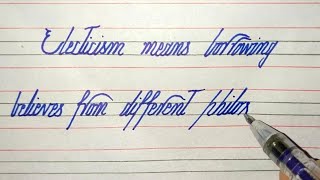 Electicism means borrowing
believes from different philos